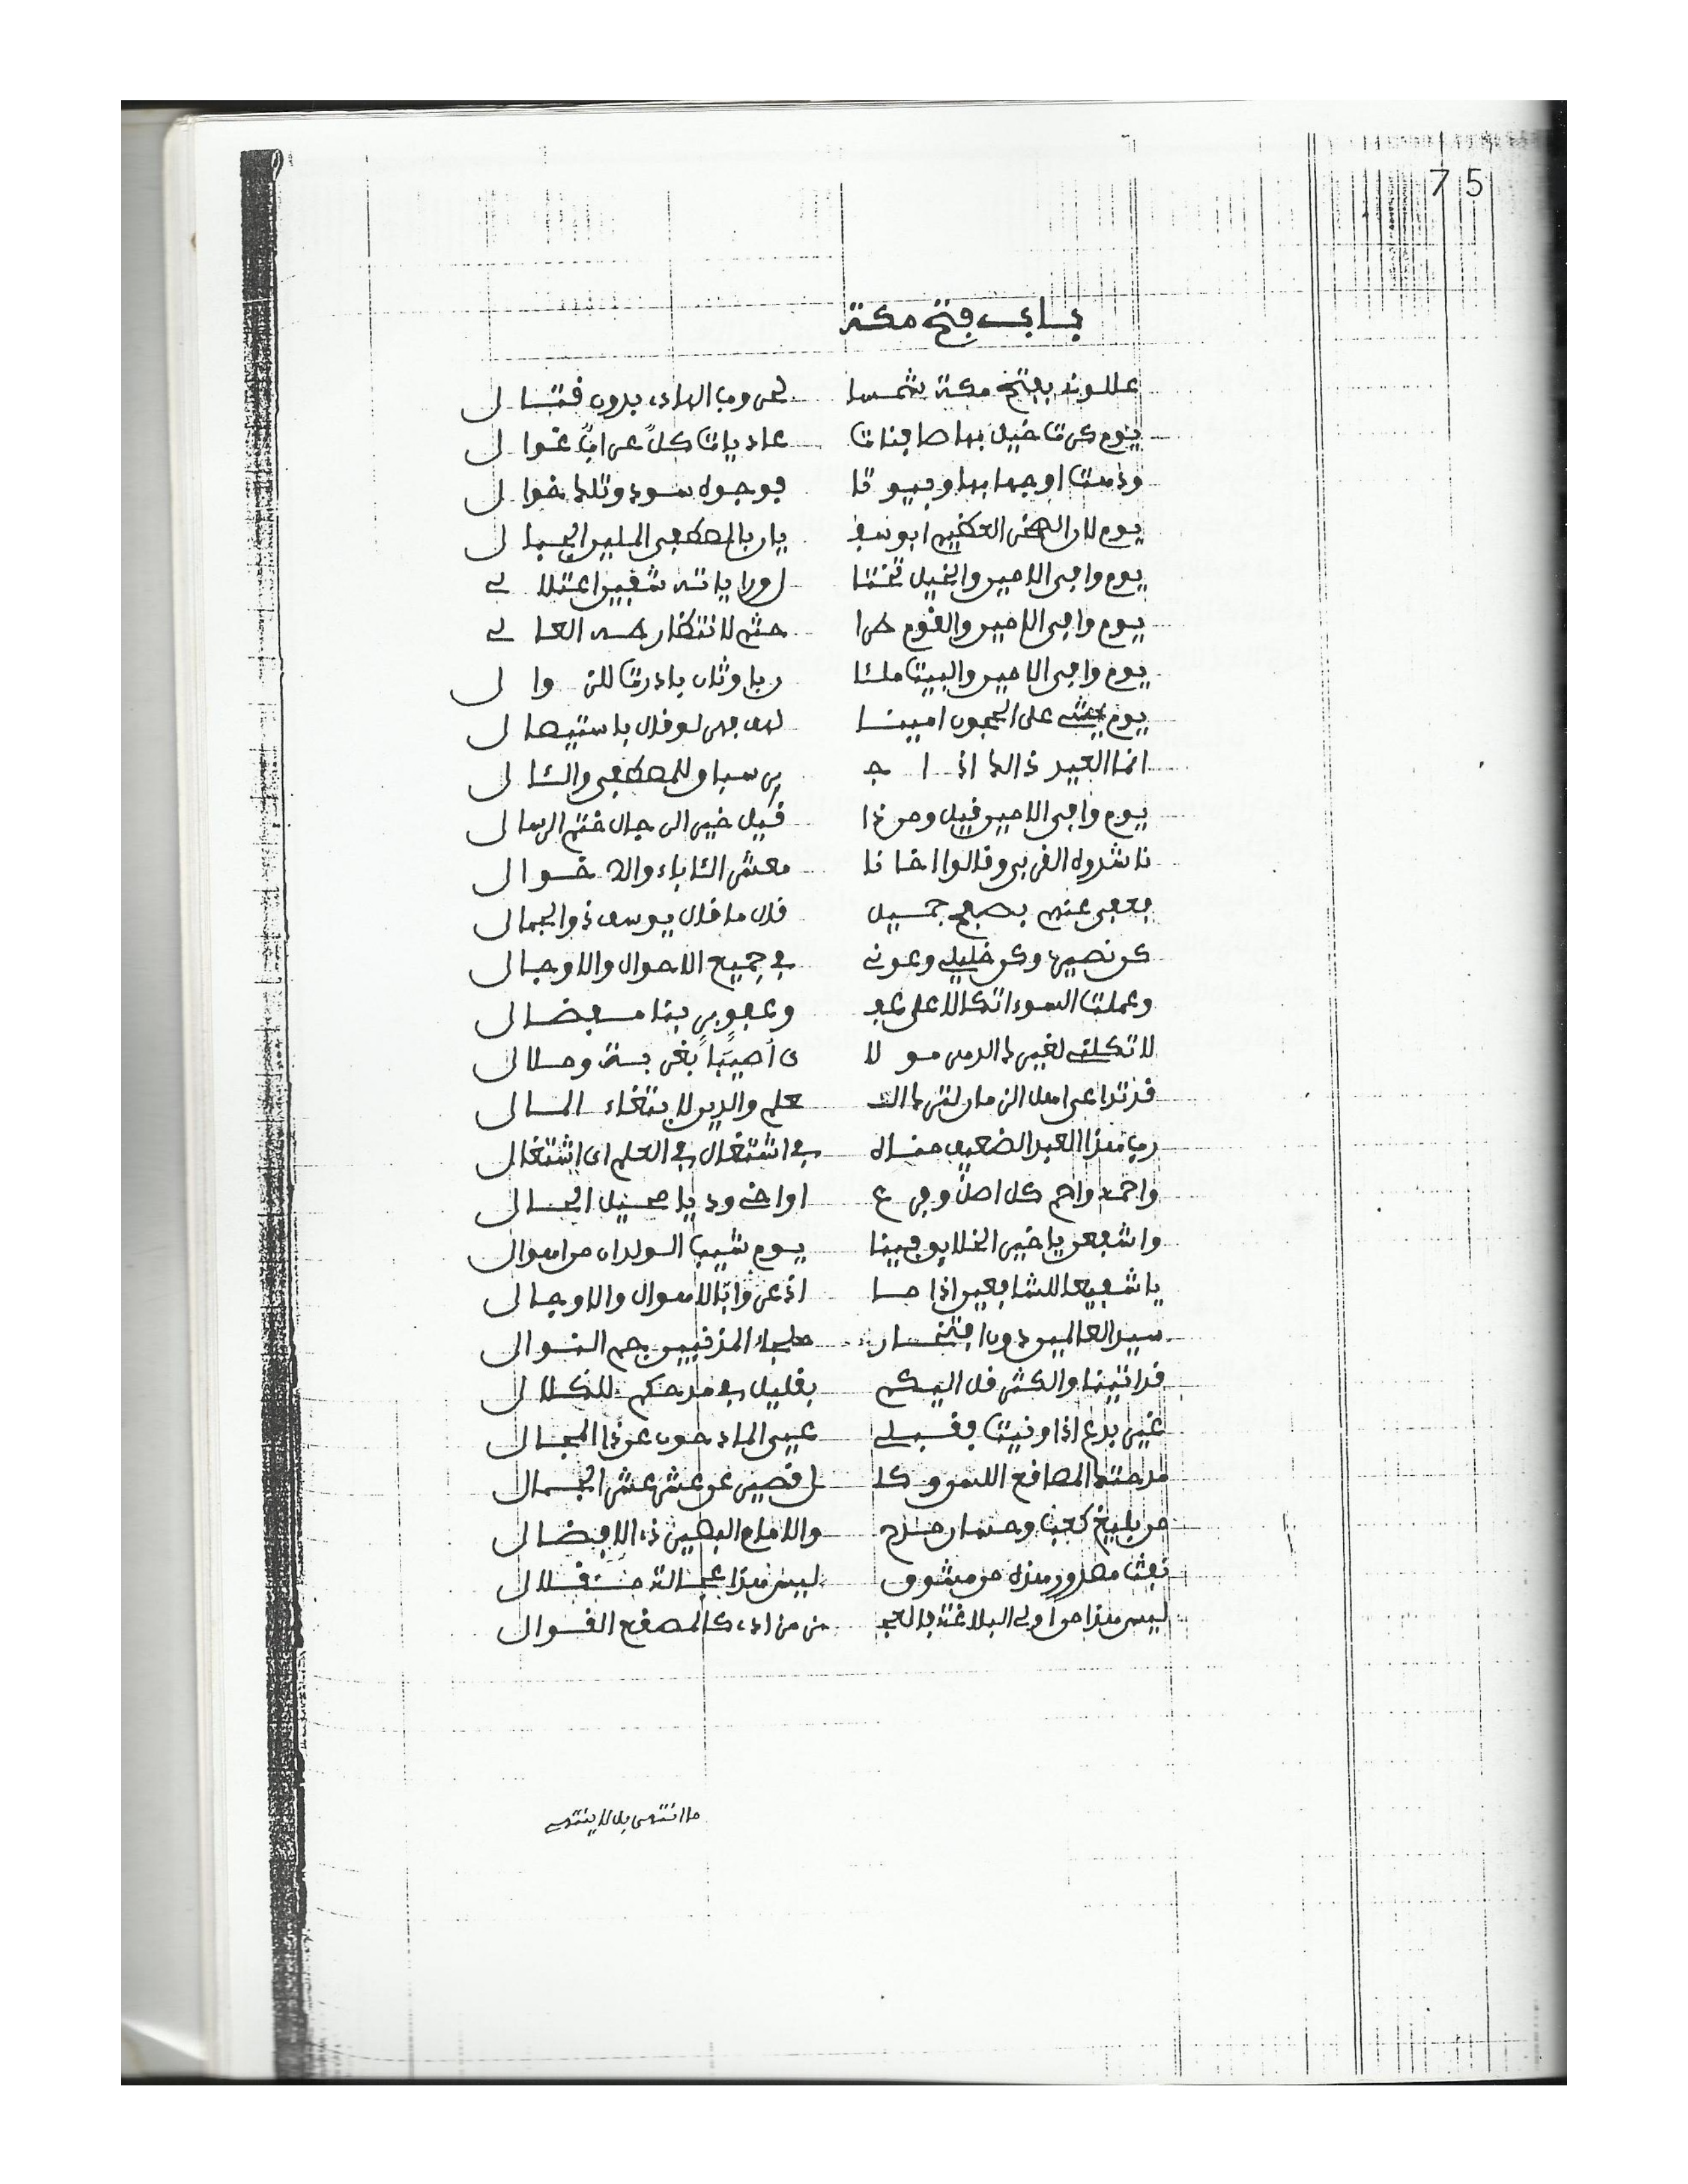 75
باب فتح مكة
عللونه بفتح مكة شمسا لحروب الهادي بدون قتال
يوم كرت خيل بها صافنات عاديات كلّ عراب غوال
ودمت اوجها بها وبيوتا بوجوه سود وتلك خوال
يوم لان الصخر العظيم ابو سفيان بالمصطفى المليح الجمال
يوم وافى الامير والخيل تحت لوا راياته شفير اعتلا لي
يوم وافى الامير والقوم طرا جثم لانتظار طه العالي
يوم وافى الامير والبيت ملئا رباوثان بادرت للزوال
يوم يمشي على الحجون امينا لهم فهر لو قال باستيصال
انما العيد ذالك اذا جر سبا و للمصطفى والئال
يوم وافى الامير قيل ومن ذا قيل خير الرجال ختم الرسال
ناشدوه القربى وقالوا اخانا معشر الئاباء والاخوال
فعفى عنهم بصفح جميل قال ما قال يوسف ذو الجمال
كن نصيري وكن خليلي وعوني في جميع الاحوال والاوجال
وعملت السوء اتكالا على عفو وعفو ربنا مفضال
لا تكلني لغيرك الدهر مولا ى اصيبا بغربة وملال
قد تداعى اهل الزمان لترك العلم والدين لابتغاء المال
رب هذا العبد الضعيف مناه في اشتغال في العلم اي اشتغال
وارحمه وارحم كل اصل وفرع او اخي ود يا محيل الحال
واشفعن يا خير الخلايق فينا يوم شيب الولدان من اهوال
يا شفيعا للشافعين اذا ما اذعروا بالاهوال والاوجال
سيد العالمين دون افتخار ملجاء المذنبين جم النوال
قد اتينا والكثر قل اليكم بقليل في مدحكم للكلال
غير بدع اذا ونيت فقبلي عيي المادحون عن ذا المجال
مدحتك المصاقع اللسن وكل قصير عن عشر عشر الجمال
من بليغ كعب وحسان مدح والامام البصير ذي الافضال
نفث مصدور هذه من مشوق ليس هذا عجالة من قلال
ليس هذا من اولي البلاغة بالعجز من اذى كالمصقع القوال
ما انتهى بل لا ينتهي